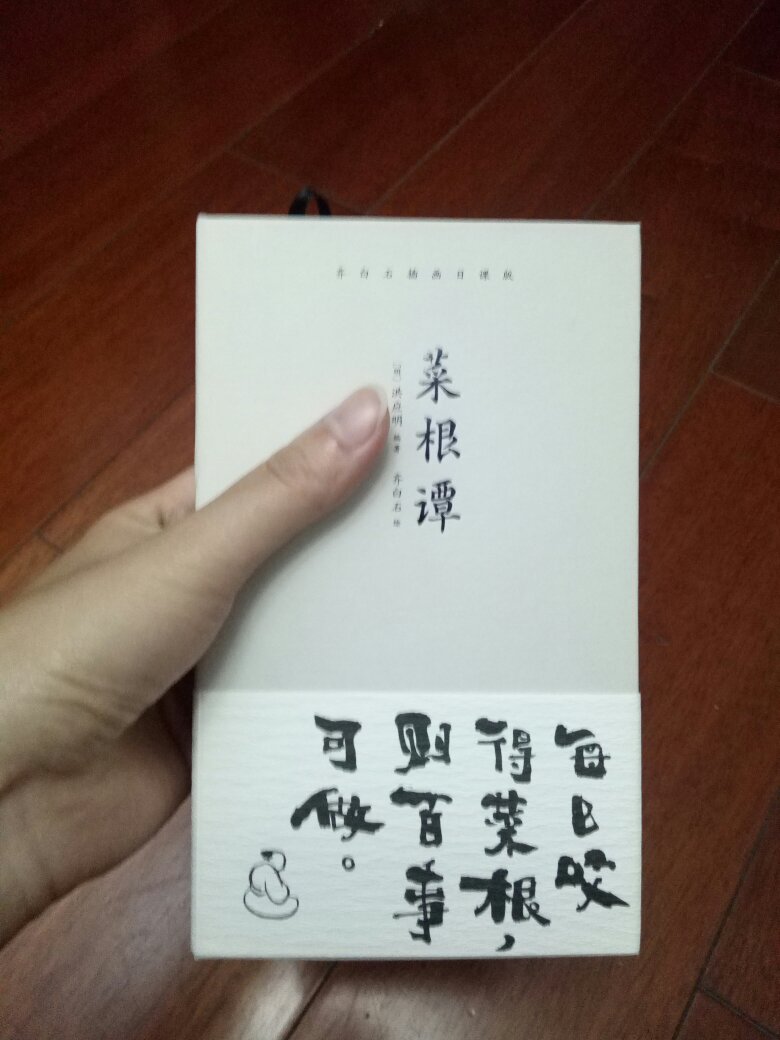 齐白石插画日课版
菜根谭
[明] 洪应明 编著 齐白石 绘
每日咬
得菜根，
则百事
可做。